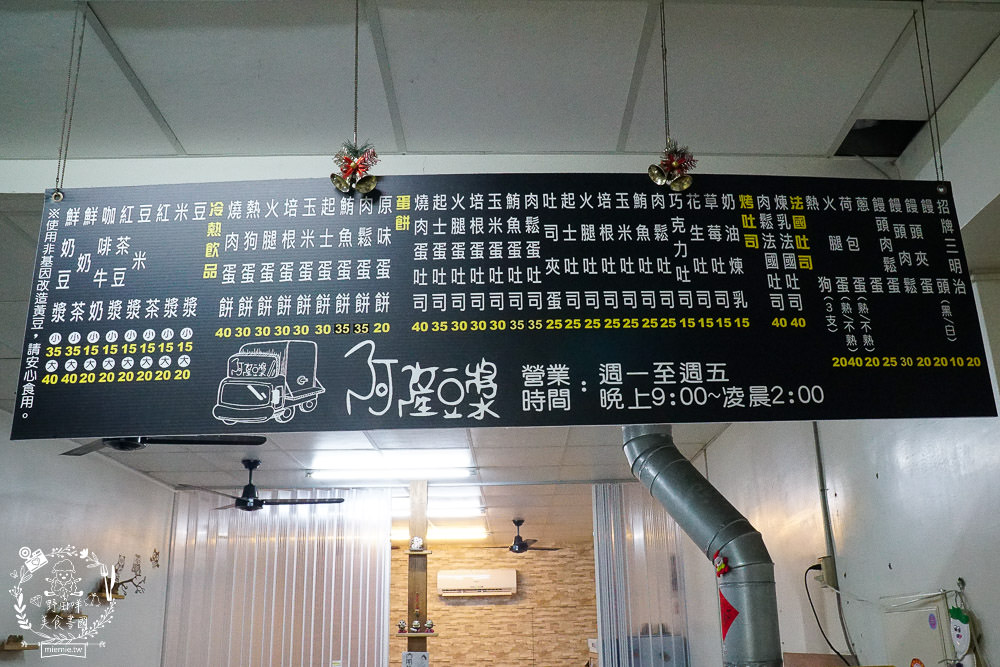 招牌三明治 20
饅頭(黑、白) 10
饅頭夾蛋 20
饅頭肉鬆 20
饅頭肉鬆蛋 30
蔥蛋 25
荷包蛋(熱/不熱) 20
火腿蛋(熱/不熱) 40
熱狗(3支) 20
法國吐司
煉乳法國吐司 40
肉鬆法國吐司 40
烤吐司
奶油煉乳 15
草莓吐司 15
花生吐司 15
巧克力吐司 15
肉鬆吐司 25
鮪魚吐司 25
玉米吐司 25
培根吐司 25
火腿吐司 25
起士吐司 25
吐司夾蛋 25
肉鬆蛋吐司 35
鮪魚蛋吐司 35
玉米蛋吐司 30
培根蛋吐司 30
火腿蛋吐司 30
起士蛋吐司 35
燒肉蛋吐司 40
蛋餅
原味蛋餅 20
肉鬆蛋餅 35
鮪魚蛋餅 35
起士蛋餅 30
玉米蛋餅 30
培根蛋餅 30
火腿蛋餅 30
熱狗蛋餅 30
燒肉蛋餅 40
冷熱飲品
豆漿 小15 大20
米漿 小15 大20
紅茶 小15 大20
豆米漿 小15 大20
紅茶豆漿 小15 大20
咖啡牛奶 小15 大20
鮮奶茶 小35 大40
鮮奶豆漿 小35 大40
※使用非基因改造黃豆,請安心食用。
阿產豆漿
阿產豆漿
營業時間:週一至週五
晚上9:00~凌晨2:00
野田咩
美食客國
miemie.tw